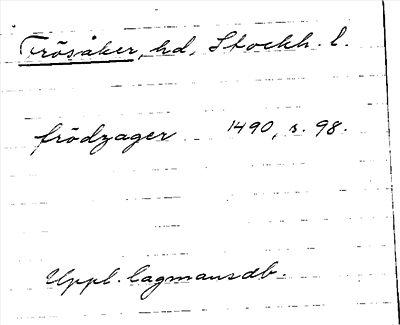 Frösåker, hd, Stockh. l.
frödzager 1490, s. 98.
Uppl. lagmansdb.